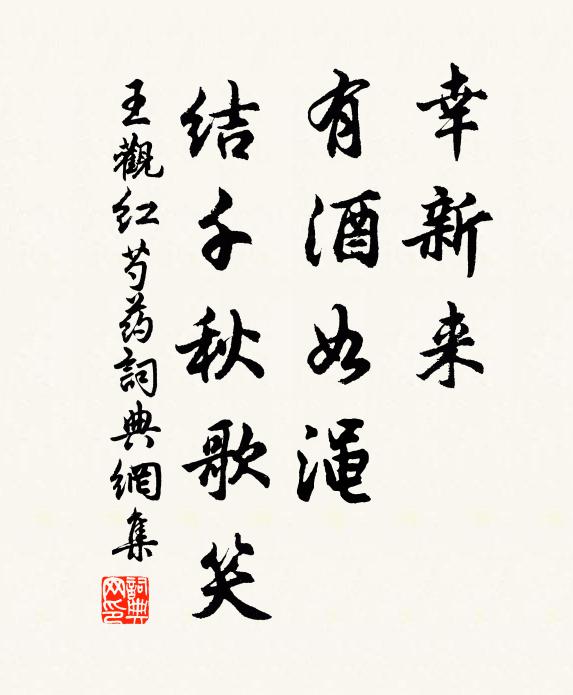 幸新来
有酒如渑
结千秋歌笑
王觀红芍药詞典網集
詞典网印